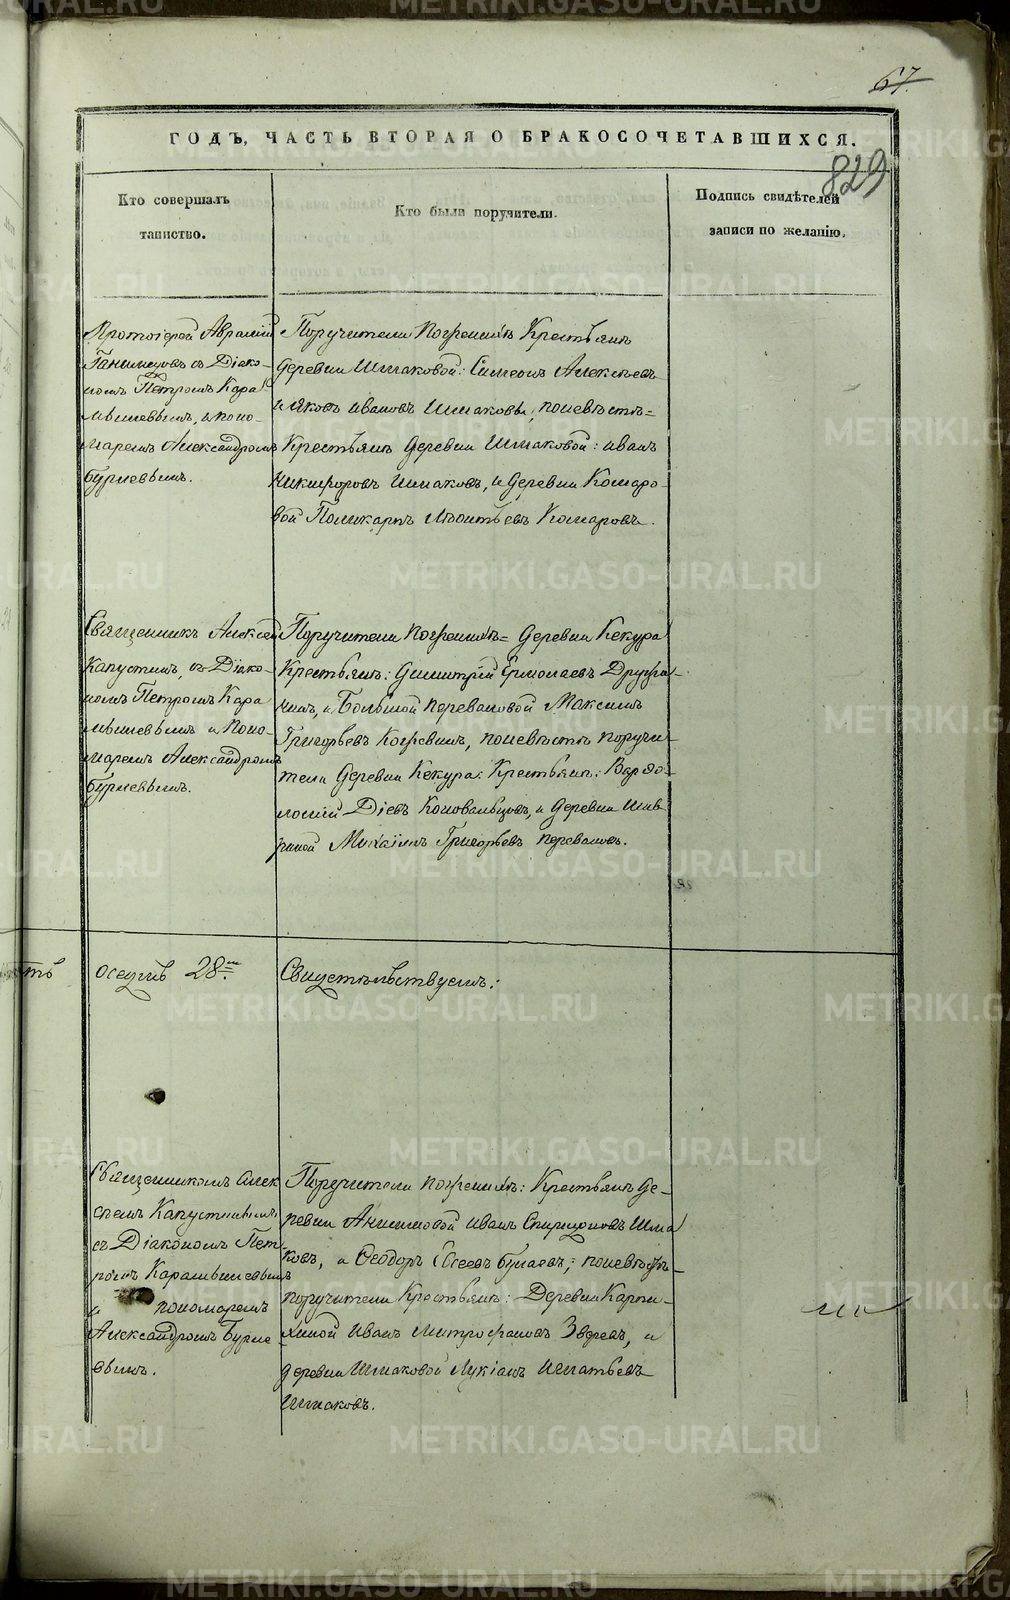 67.
ГОДЪ, ЧАСТЬ ВТОРАЯ О БРАКОСОЧЕТАВШИХСЯ.
829
Кто совершалъ
таинство.
Кто были поручители.
Подпись свидѣтелей
записи по желанію.
Протоіерей Авраамій
съ Діако-
номъ Петромъ Кара
мышевымъ, и поно-
маремъ Александромъ
Бурцевымъ.
Поручители по женихѣ Крестьяне
деревни Шмаковой: Симеонъ Алексѣевъ
и Яковъ Ивановъ Шмаковы, по невѣстѣ=
Крестьяне деревни Шмаковой: Иванъ
Никифоровъ Шмаковъ, и деревни Комаро-
вой Поликарпъ Леонтьевъ Комаровъ.
Священникъ Алексѣй
Капустинъ, съ Діако-
номъ Петромъ Кара
мышевымъ и Поно-
маремъ Александромъ
Бурцевымъ.
Поручители по женихѣ= деревни Кекура
Крестьяне: Димитрій Ермолаевъ
и Большой Переваловой Максимъ
Григорьевъ по невѣстѣ поручи-
тели деревни Кекура: Крестьяне: Варѳо-
ломей Діевъ Коновальцовъ, и деревни
Михаилъ Григорьевъ Переваловъ.
28
Свидѣтельствуемъ:
Священникомъ Алек
сѣемъ Капустинымъ
съ Діакономъ Пет-
ромъ Карамышевымъ
и пономаремъ
Александромъ Бурце
вымъ.
Поручители по женихѣ: Крестьяне де-
ревни Анисимовой Иванъ Спиридоновъ Шма
ковъ, и Ѳеодоръ Евсеевъ по невѣстѣ-
поручители Крестьяне: Деревни Карпи-
хиной Иванъ Митрофановъ Звѣревъ, и
деревни Шмаковой Лукіанъ Игнатьевъ
Шмаковъ.
METRIKI.GASO-URAL.RU